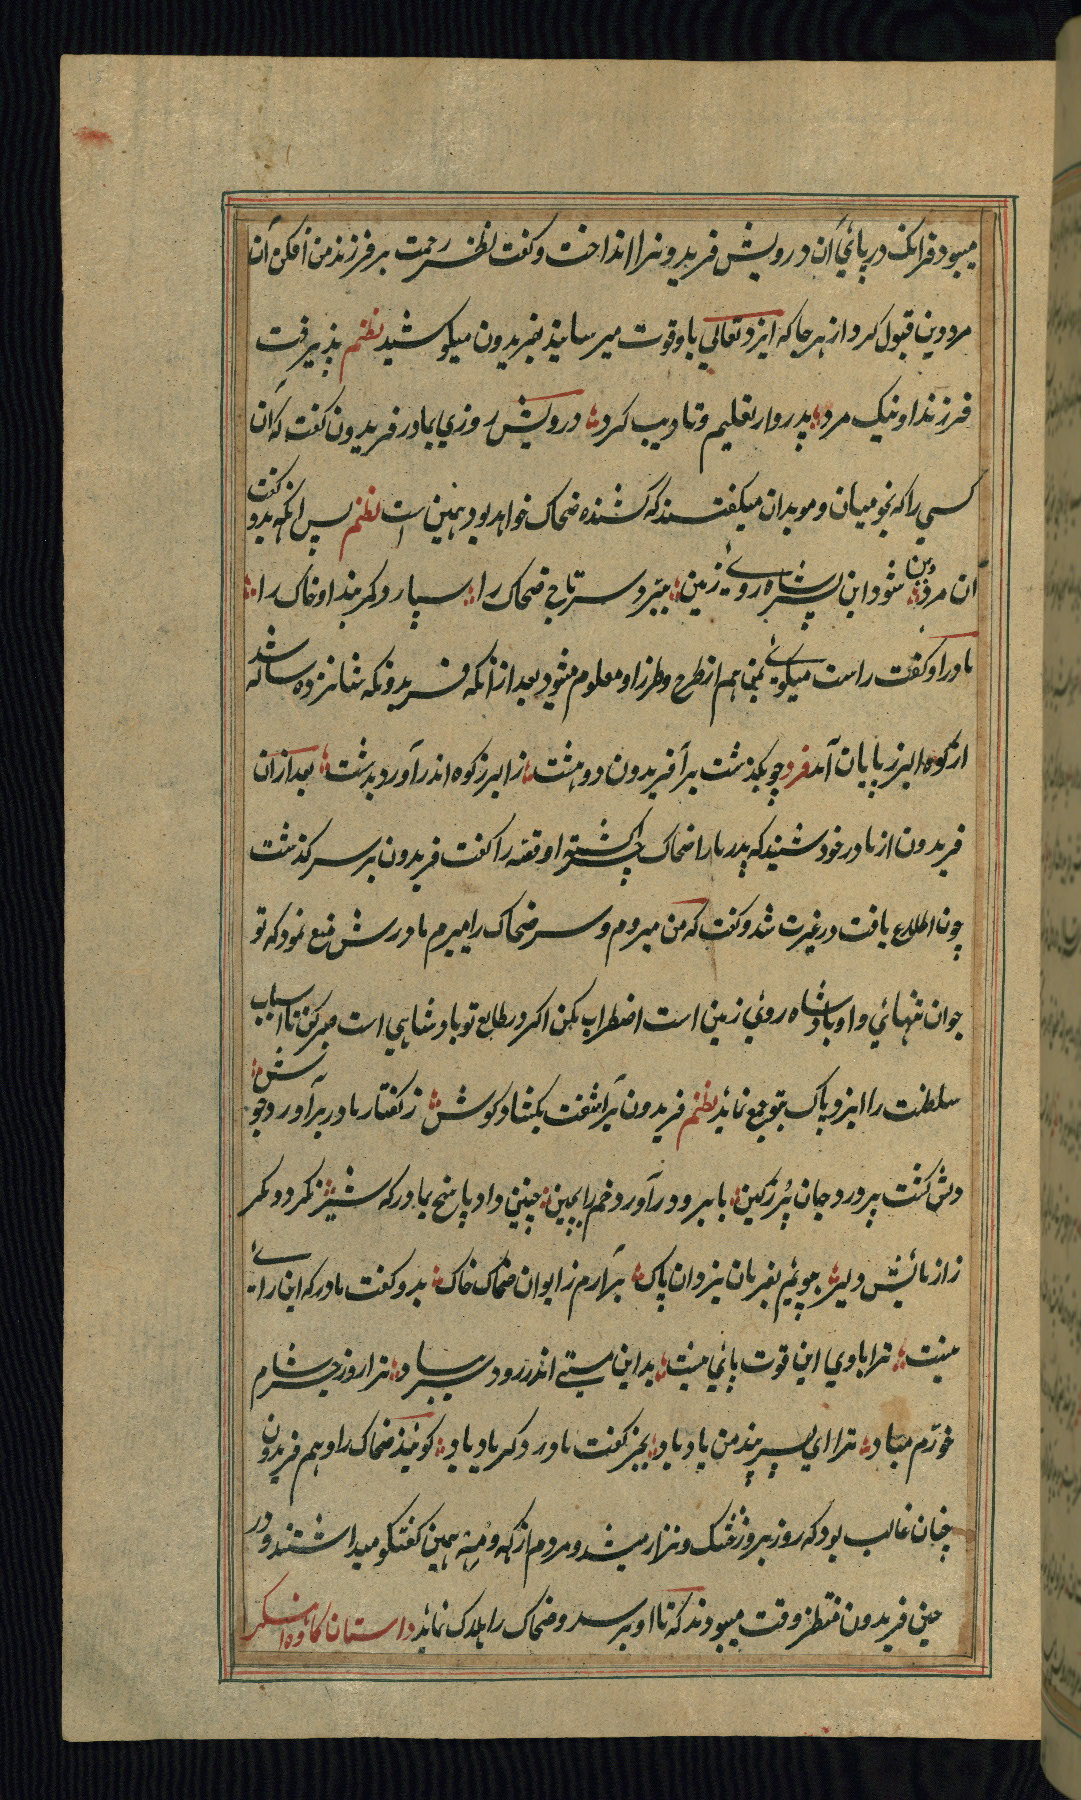 میبود فرانک در پائی آن درویش فریدونرا انداخت و گفت نظر رحمت بر فرزند من افکن آن
مرد دین قبول کرد از هر جا که ایزد تعالی باو قوت میرسانید بفریدون میکوشید نظم پذیرفت
فرزند او نیک مرد پدر وار تعلیم و تادیب کرد درویش روزی بمادر فریدون گفت که آن
کسی را که نجومیان و موبدان میگفتند که کشنده ضحاک خواهد بود همین است نظم پس انگه بدو گفت
آن مرد دین شود این پسر شاه روی زمین ببرد سر تاج ضحاک را سپارد کمربند او خاک را
مادر او گفت راست میگویی همین هم از طرح و طرز او معلوم میشود بعد از آنکه فریدونکه شانزده ساله شد
از کوه البرز پایان آمد فرد چو بگذشت بر آفریدون دو هشت ز البرز کوه اندر آورد بدشت بعد ازان
فریدون از مادر خود شنید که پدر ما را ضحاک چرا کشته او قصه را گفت فریدون بر سرگذشت
چون اطلاع یافت در غیرت شد و گفت که من میروم و سر ضحاک را میبرم مادرش منع نمود که تو
جوان تنهائی و او بادشاه روئی زمین است اضطراب مکن اگر در طالع تو بادشاهی است صبر کن تا اسباب
سلطنت را ایزد پاک بتو جمع نماید نظم فریدون برآشفت بگشاد گوش ز گفتار مادر برآورد جوش
دلش گشت پر درد و جان پر ز کین بابرو درآورد خم را بچین چنین داد پاسخ بمادر که شیر نگردد مگر
ز ازمائیش دلیر بپویم بفرمان یزدان پاک برآرم ز ایوان ضحاک خاک بدو گفت مادر که این رای
نیست ترا با وی این قوت پائی نیست بدین مستی اندر رود سر بباد ترا روز جز شام
خورم مباد ترا ای پسر پند من یاد باد بجز گفت مادر دگر باد باد گویند ضحاک را وهم فریدون
چنان غالب بود که روز بروز خشک و نزار میشد و مردم از که و مه همین گفتگو میداشتند و در
حین فریدون منتظر وقت میبودند که تا او برسد و ضحاک را هلاک نماید داستان کاوه آهنگر